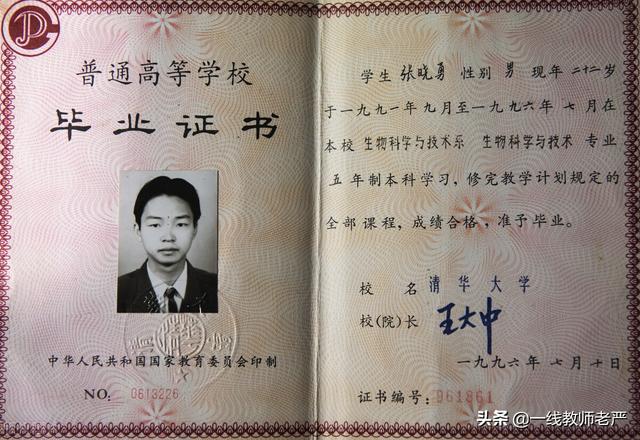 普通高等学校
毕业证书
中华人民共和国国家教育委员会印制
NO: 0613226
学生 张晓勇 性别 男 现年 二十二 岁
于一九九一年九月至一九九六年七月在
本校 生物科学与技术系 生物科学与技术 专业
五年制本科学习，修完教学计划规定的
全部课程，成绩合格，准予毕业。
校名 清华大学
校(院)长 王大中
一九九六年七月十日
证书编号: 961861
头条 @一线教师老严